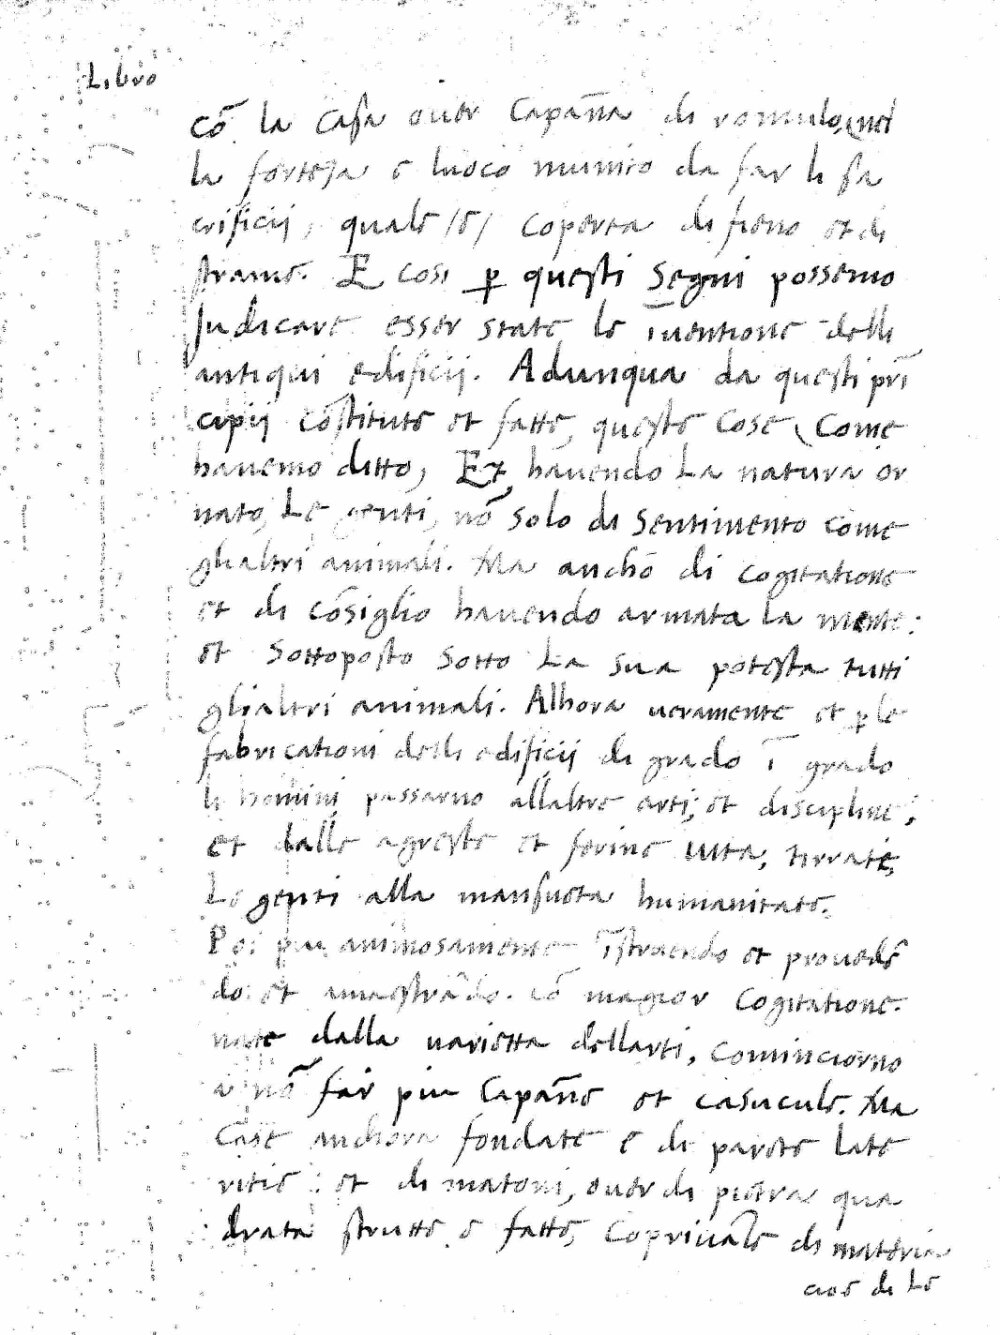 Libro
cõ la casa ouer capãna di romulo, nel
la forteza o luoco munito da far li sa
crificij, quale /e/ coperta di fieno et di
strame. E cosi p questi segni possemo
Judicare esser state le inuentione delli
antiqui edificij. Adunqua da questi pri
cipij cõstitute et fatte, queste cose, come
hauemo ditto, Et hauendo La natura or
nato, Le genti, nõ solo di sentimento come
glialtri animali. Ma anchõ di cogitatione
et di cõsiglio hauendo armata la mente:
et sottoposto sotto La sua potesta tutti
glialtri animali. Alhora ueramente et p le
fabricationi delli edificij di grado ĩ grado
li homini passarno allaltre arti; et discipline;
et dalle agreste et ferine uita, tirrate,
Le genti alla mansueta humanitate.
Poi piu animosamente ĩstruendo et prouedẽ
do et amaestrãdo. cõ magior cogitatione.
nate dalla varietta dellarti, cominciorno
a nõ far piu capãne et casucule. Ma
case anchora fondate e di parete late
ritie : et di matoni, ouer di pietra qua
drata strutte e fatte, copriuale di materia
cioe di Le